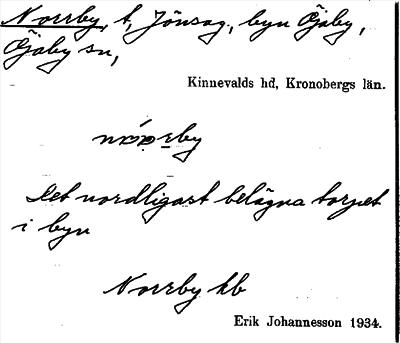 Norrby, t, Jönsag, byn Öjaby,
Öjaby sn,
Kinnevalds hd, Kronobergs län.
det nordligast belägna torpet
i byn
Norrby kb
Erik Johannesson 1934.